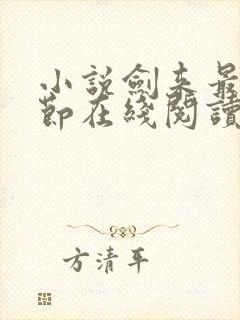 小說劍來最
節在綫閱讀
方清平